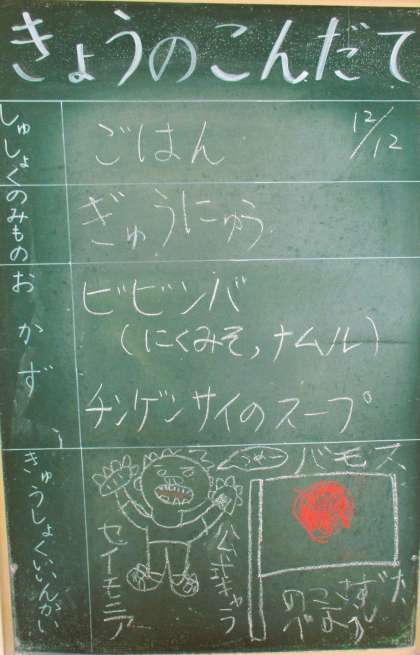 きょうのこんだて
しゅしょく
ごはん
12/12
のみもの
ぎゅうにゅう
おかず
ビビンバ
(にくみそ,ナムル)
チンゲンサイのスープ
きゅうしょくいいんかい
バモス
セイモニア
公式キャラ
のこさず